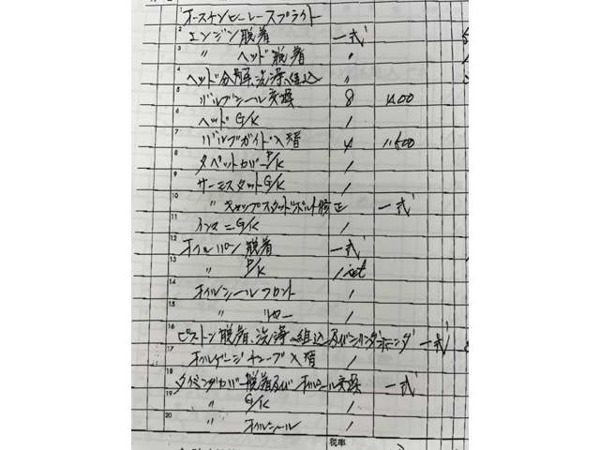 1 オースチンヒーレースプライト
2 エンジン脱着 一式
3 〃 ヘッド脱着 〃
4 ヘッド分解、洗浄、組込 〃
5 バルブシール交換 8 400
6 ヘッドG/K 1
7 バルブガイド入替 4 1,500
8 タペットカバーP/K 1
9 サーモスタットG/K 1
10 〃 キャップスタットボルト修正 一式
11 インマニG/K 1
12 オイルパン脱着 一式
13 〃 P/K 1 set
14 オイルシールフロント 1
15 〃 リヤー 1
16 ピストン脱着、洗浄、組込及びシリンダホーニング 一式
17 オイルゲージチューブ入替 1
18 タイミングカバー脱着及びオイルシール交換 一式
19 〃 G/K 1
20 〃 オイルシール 1
税率